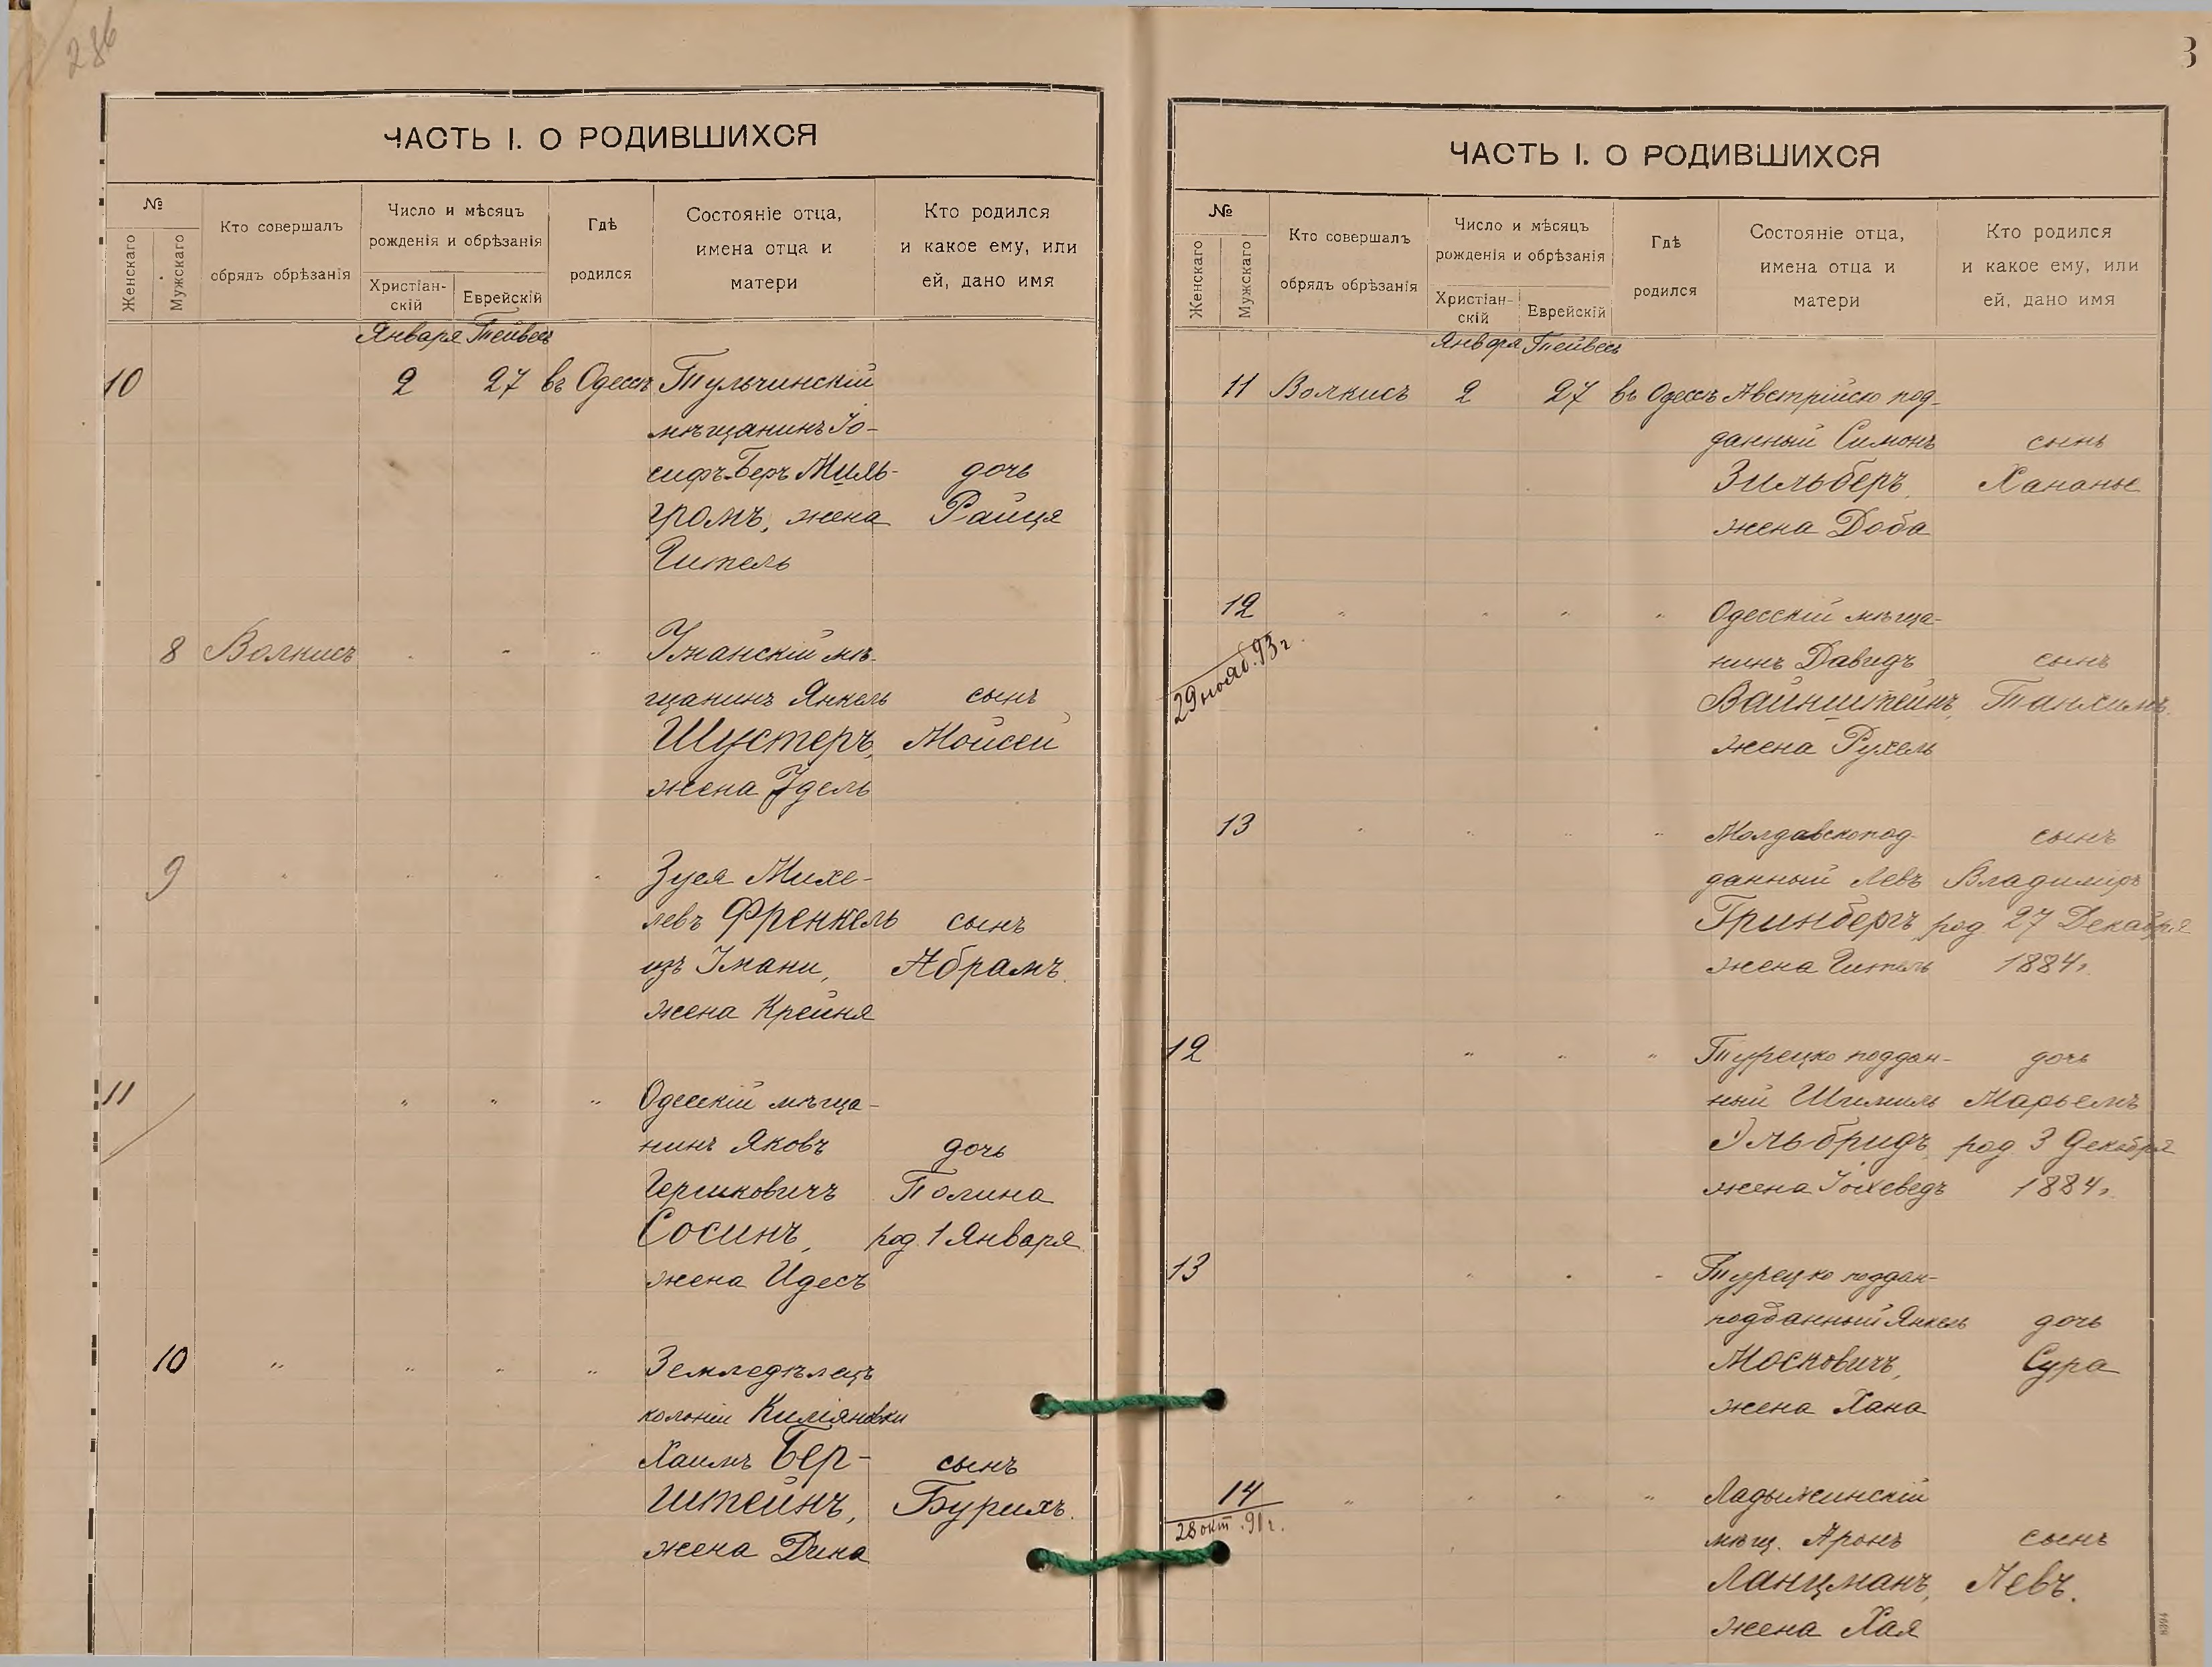 286
ЧАСТЬ I. О РОДИВШИХСЯ
№
Женскаго
Мужскаго
Кто совершалъ
обрядъ обрѣзанія
Число и мѣсяцъ
рожденія и обрѣзанія
Христіан-
скій
Еврейскій
Гдѣ
родился
Состояніе отца,
имена отца и
матери
Кто родился
и какое ему, или
ей, дано имя
Января Тейвесъ
10 2 27 въ Одессѣ Тульчинскій
мѣщанинъ Іо-
сифъ-Беръ Миль- дочь
громъ, жена Раиця
Гитель
8 Волкисъ " " " Уманскій мѣ-
щанинъ Янкель сынъ
Шустеръ, Мойсей
жена Удель
9 " " " " Зуся Михе-
левъ Френкель сынъ
изъ Умани, Абрамъ.
жена Крейня
11 " " " Одесскій мѣща-
нинъ Яковъ дочь
Гершковичъ Полина
Сосинъ, род. 1 Января
жена Идесъ
10 " " " " Земледѣлецъ
колоніи Киліяновки
Хаимъ Бер- сынъ
штейнъ, Бурихъ.
жена Дина
3
ЧАСТЬ I. О РОДИВШИХСЯ
№
Женскаго
Мужскаго
Кто совершалъ
обрядъ обрѣзанія
Число и мѣсяцъ
рожденія и обрѣзанія
Христіан-
скій
Еврейскій
Гдѣ
родился
Состояніе отца,
имена отца и
матери
Кто родился
и какое ему, или
ей, дано имя
Января Тейвесъ
11 Волкисъ 2 27 въ Одессѣ Австрійско под-
данный Симонъ сынъ
Зильберъ, Хананье
жена Доба
12 " " " " Одесскій мѣща-
29 нояб. 93 г.
нинъ Давидъ сынъ
Вайнштейнъ, Танхимъ.
жена Рухель
13 " " " " Молдавскопод- сынъ
данный Левъ Владиміръ
Гринбергъ, род. 27 Декабря
жена Гитель 1884 г.
12 " " " Турецко поддан- дочь
ный Шмиль Марьемъ
Эльбридъ, род 3 Декабря
жена Іохеведъ 1884 г.
13 " " " Турецко поддан-
подданный Янкель дочь
Московичъ, Сура
жена Хана
14 " " " " Ладыжинскій
28 окт. 91 г.
мѣщ. Аронъ сынъ
Ланцманъ, Левъ.
жена Хая